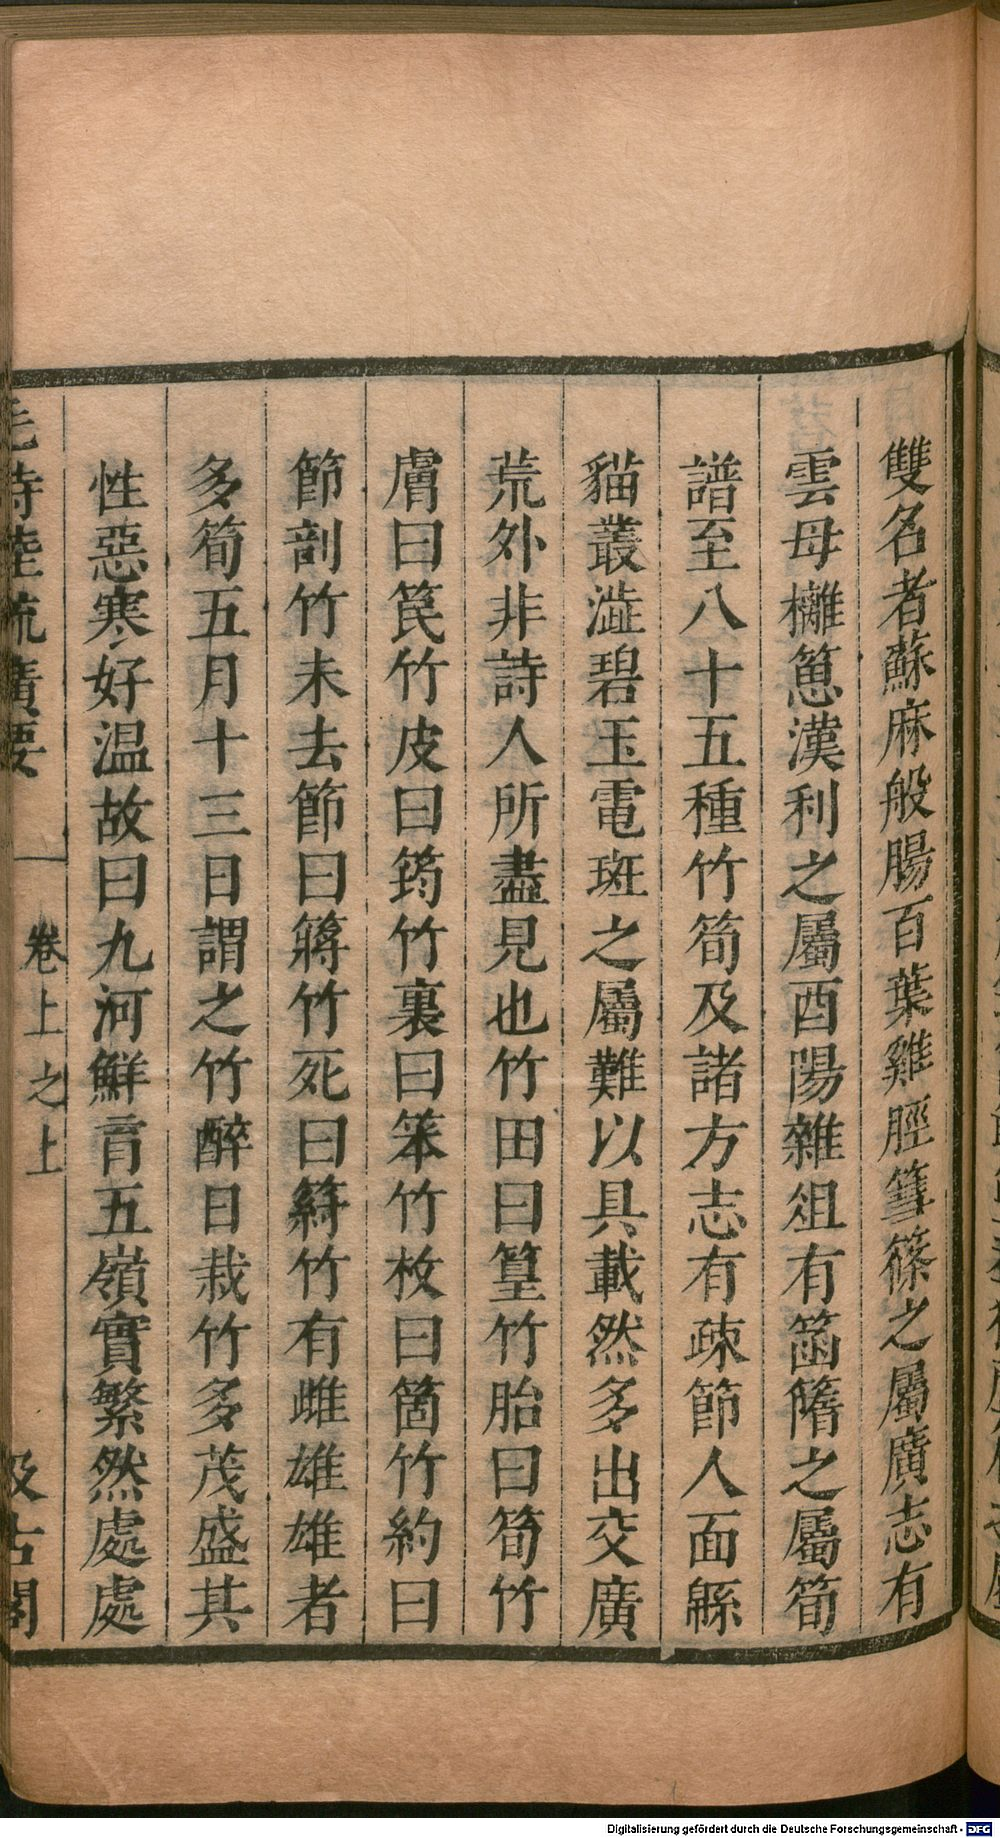 雙名者蘇麻般腸百葉雞脛篲篠之屬廣志有
雲母䉫篃漢利之屬酉陽雜俎有箘䉏之屬筍
譜至八十五種竹筍及諸方志有疎節人面緜
貓叢澁碧玉電斑之屬難以具載然多出交廣
荒外非詩人所盡見也竹田曰篁竹胎曰筍竹
膚曰笢竹皮曰筠竹裏曰笨竹枚曰箇竹約曰
節剖竹未去節曰篣竹死曰䈘竹有雌雄雄者
多筍五月十三日謂之竹醉日栽竹多茂盛其
性惡寒好温故曰九河鮮育五嶺實繁然處處
毛詩陸疏廣要
卷上之上
汲古閣
Digitalisierung gefördert durch die Deutsche Forschungsgemeinschaft - DFG